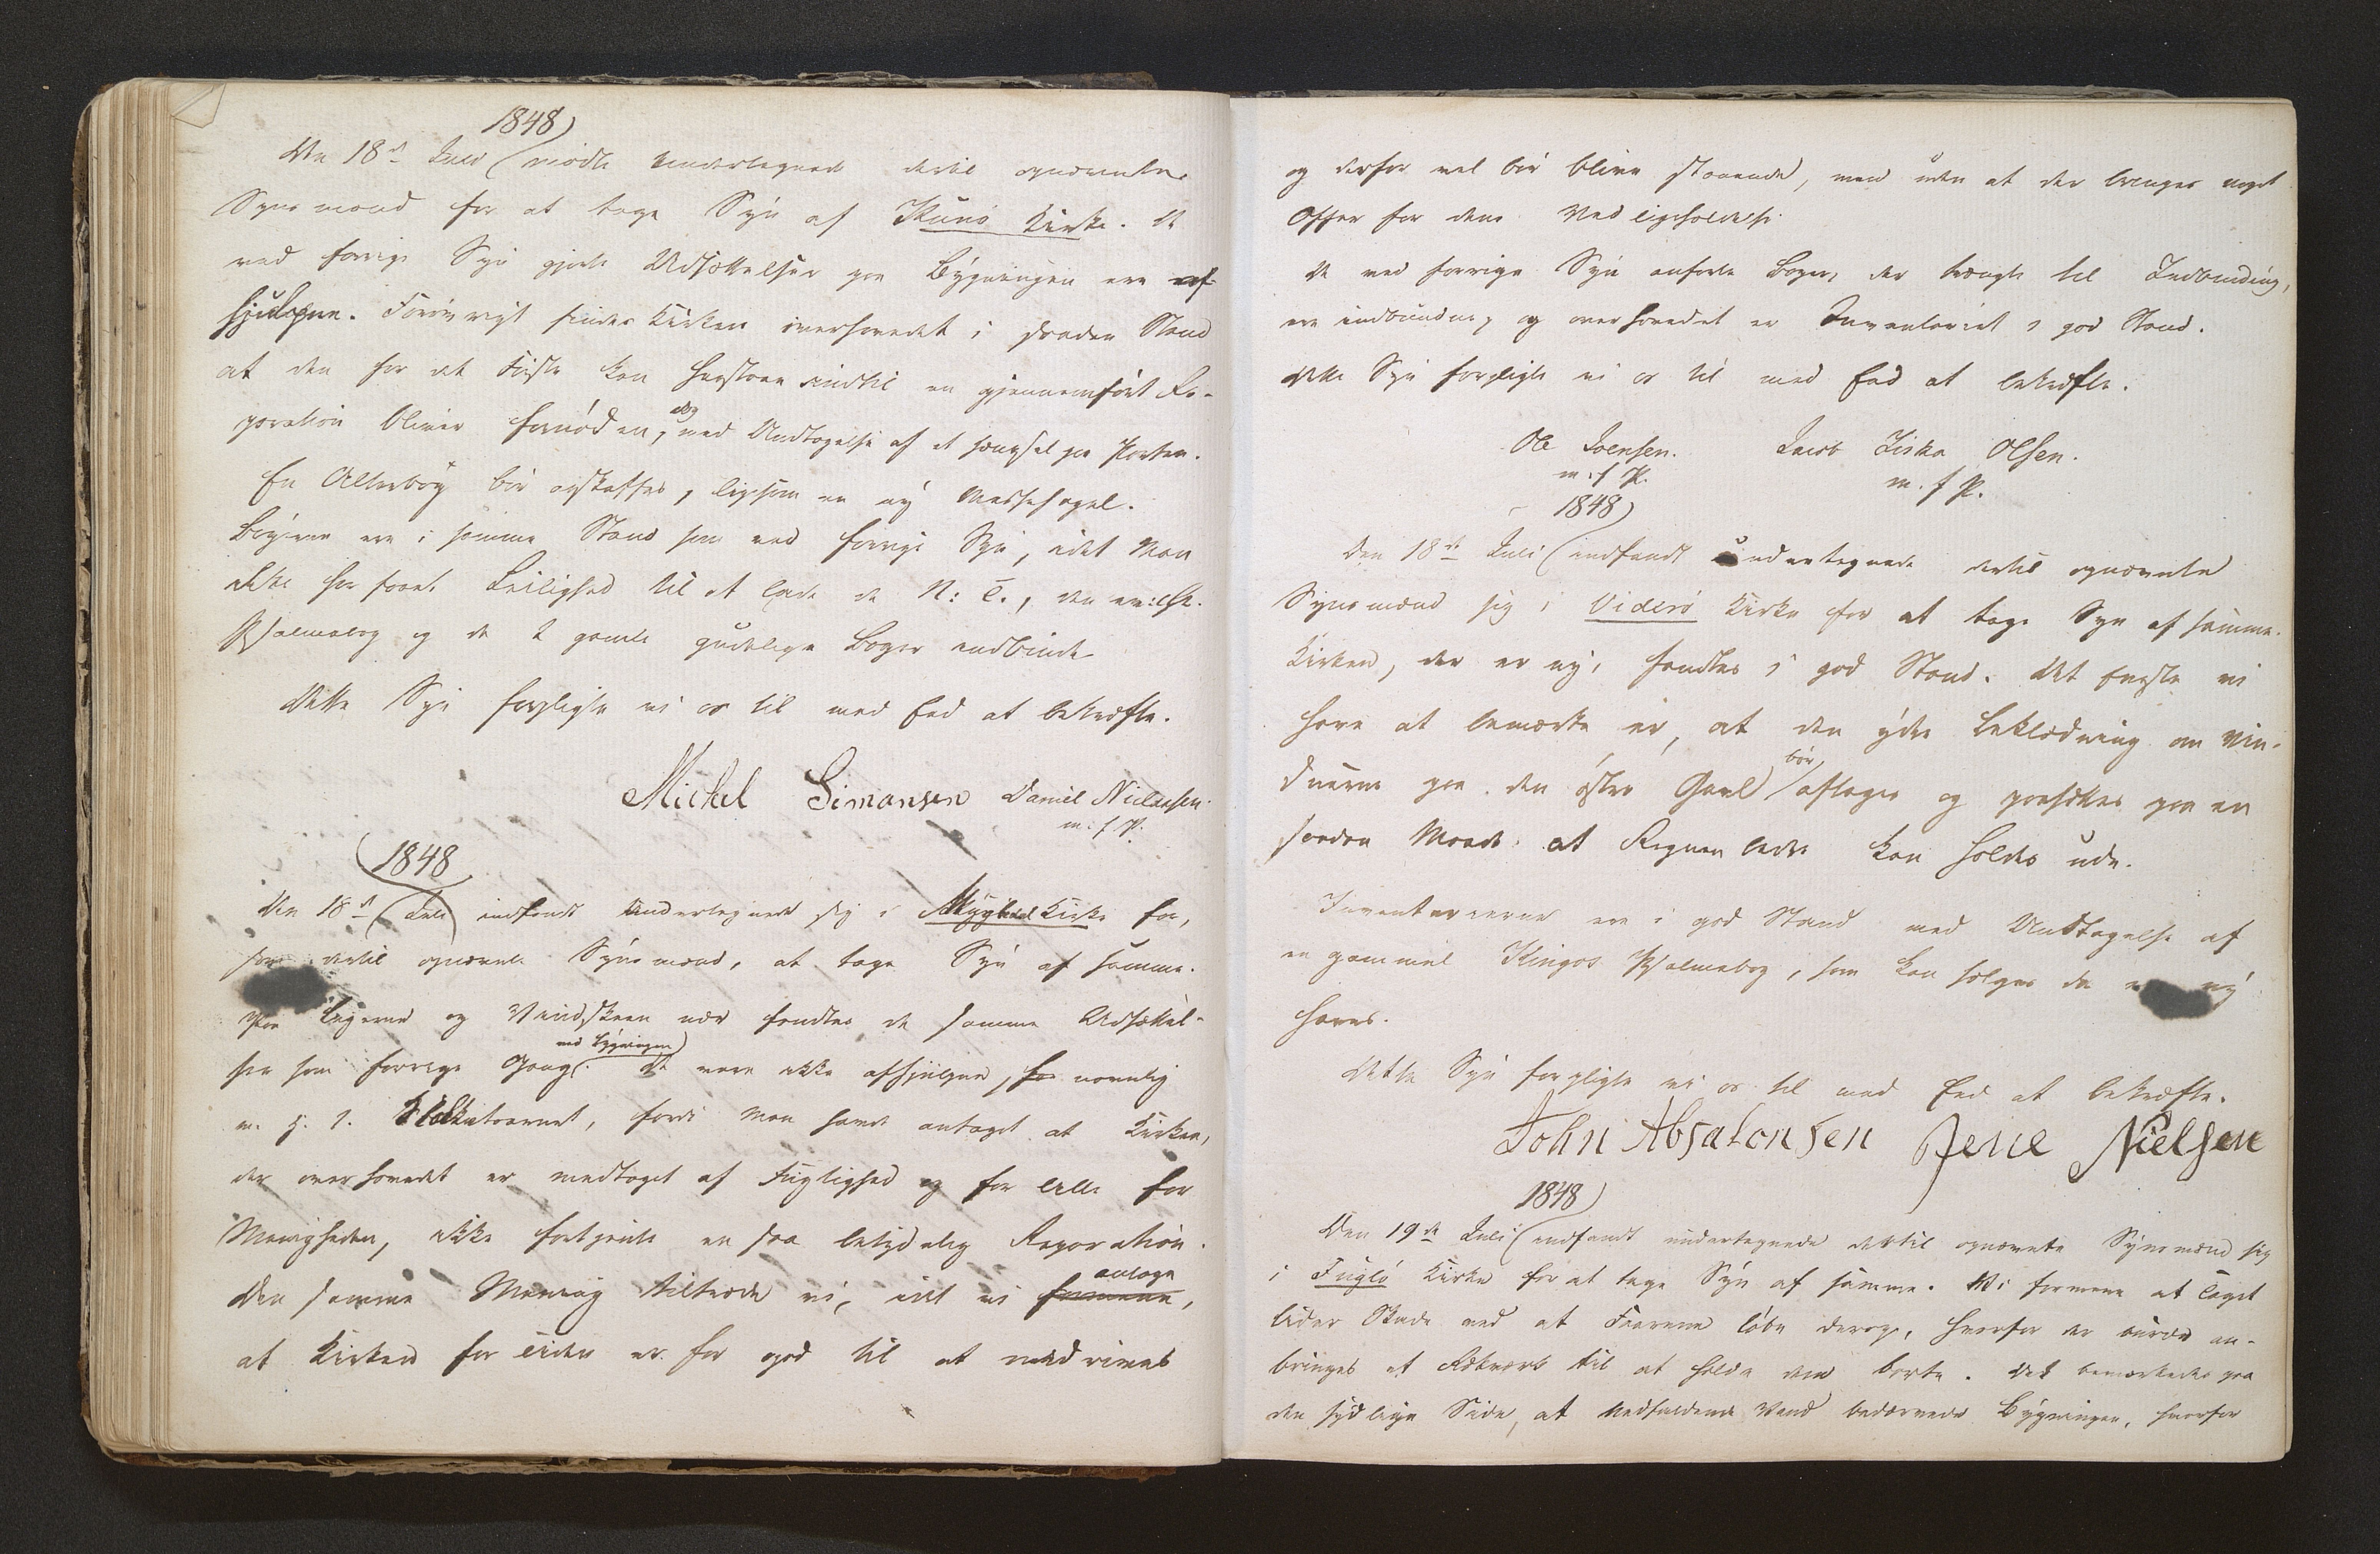 1848
Den 18de Juli mødte undertegnede dertil opnævnte
Synsmænd for at tage Syn af Kunø Kirke. De
ved forrige Syn gjorte Udsættelser paa Bygningen ere af-
hjulpne. Forøvrigt findes Kirken overhovedet i saadan Stand
at den for det Første kan henstaae indtil en gjennemført Re-
paration bliver fornøden, dog med Undtagelse af et Hængsel paa Porten.
En Alterbog bør anskaffes, ligesom en ny Messehagel.
Bøgerne ere i samme Stand som ved forrige Syn, idet Man
ikke har havt Leilighed til at lade de N: T., den evi: chr.
Psalmebog og de 2 gamle gudelige Bøger indbinde
Dette Syn forpligte vi os til med Eed at bekræfte.
Michel Simonsen Daniel Nielsen.
m. f. P.
1848
Den 18de Juli indfandt undertegnede sig i Kirke for,
som dertil opnævnte Synsmænd, at tage Syn af samme.
Paa og Vindskeen ved fandtes de samme Udsættel-
ser som forrige Gang. ved Bygningen De vare ikke afhjulpne, for navnlig
m. H. t. Klokketaarnet, fordi man havde antaget at Kirken,
der overhovedet er medtaget af Fugtighed og for lille for
Menigheden, ikke fortjente en saa betydelig Reparation.
Den samme Mening tiltræde vi, idet vi formene, antage
at Kirken for Tiden er for god til at nedrives
og derfor vel bør blive staaende, men uden at der bringes noget
Offer for dens Vedligeholdelse.
De ved forrige Syn anførte Bøger, der trængte til Indbinding,
ere indbundne, og overhovedet er Inventariet i god Stand.
Dette Syn forpligte vi os til med Eed at bekræfte.
Ole Joensen. Jacob Olsen.
m. f. P. m. f. P.
1848
Den 18de Juli indfandt undertegnede dertil opnævnte
Synsmænd sig i Viderø Kirke for at tage Syn af samme.
Kirken, der er ny, fandtes i god Stand. Det Eneste vi
have at bemærke er, at den ydre Beklædning om Vin-
duerne paa den østre Gavl bør aftages og paasættes paa en
saadan Maade at Regnen bedre kan holdes ude.
Inventarierne ere i god Stand med Undtagelse af
en gammel Kingos Psalmebog, som kan sælges da en ny
haves.
Dette Syn forpligte vi os til med Eed at bekræfte.
John Absalonsen Jene Nielsen
1848
Den 19de Juli indfandt undertegnede dertil opnævnte Synsmænd sig
i Fuglø Kirke for at tage Syn af samme. Vi formene at Taget
lider Skade ved at Faarene løbe derop, hvorfor der burde an-
bringes et Rækværk til at holde dem borte. Det bemærkedes paa
den sydlige Side, at nedfaldende Vand bedærvede Bygningen, hvorfor